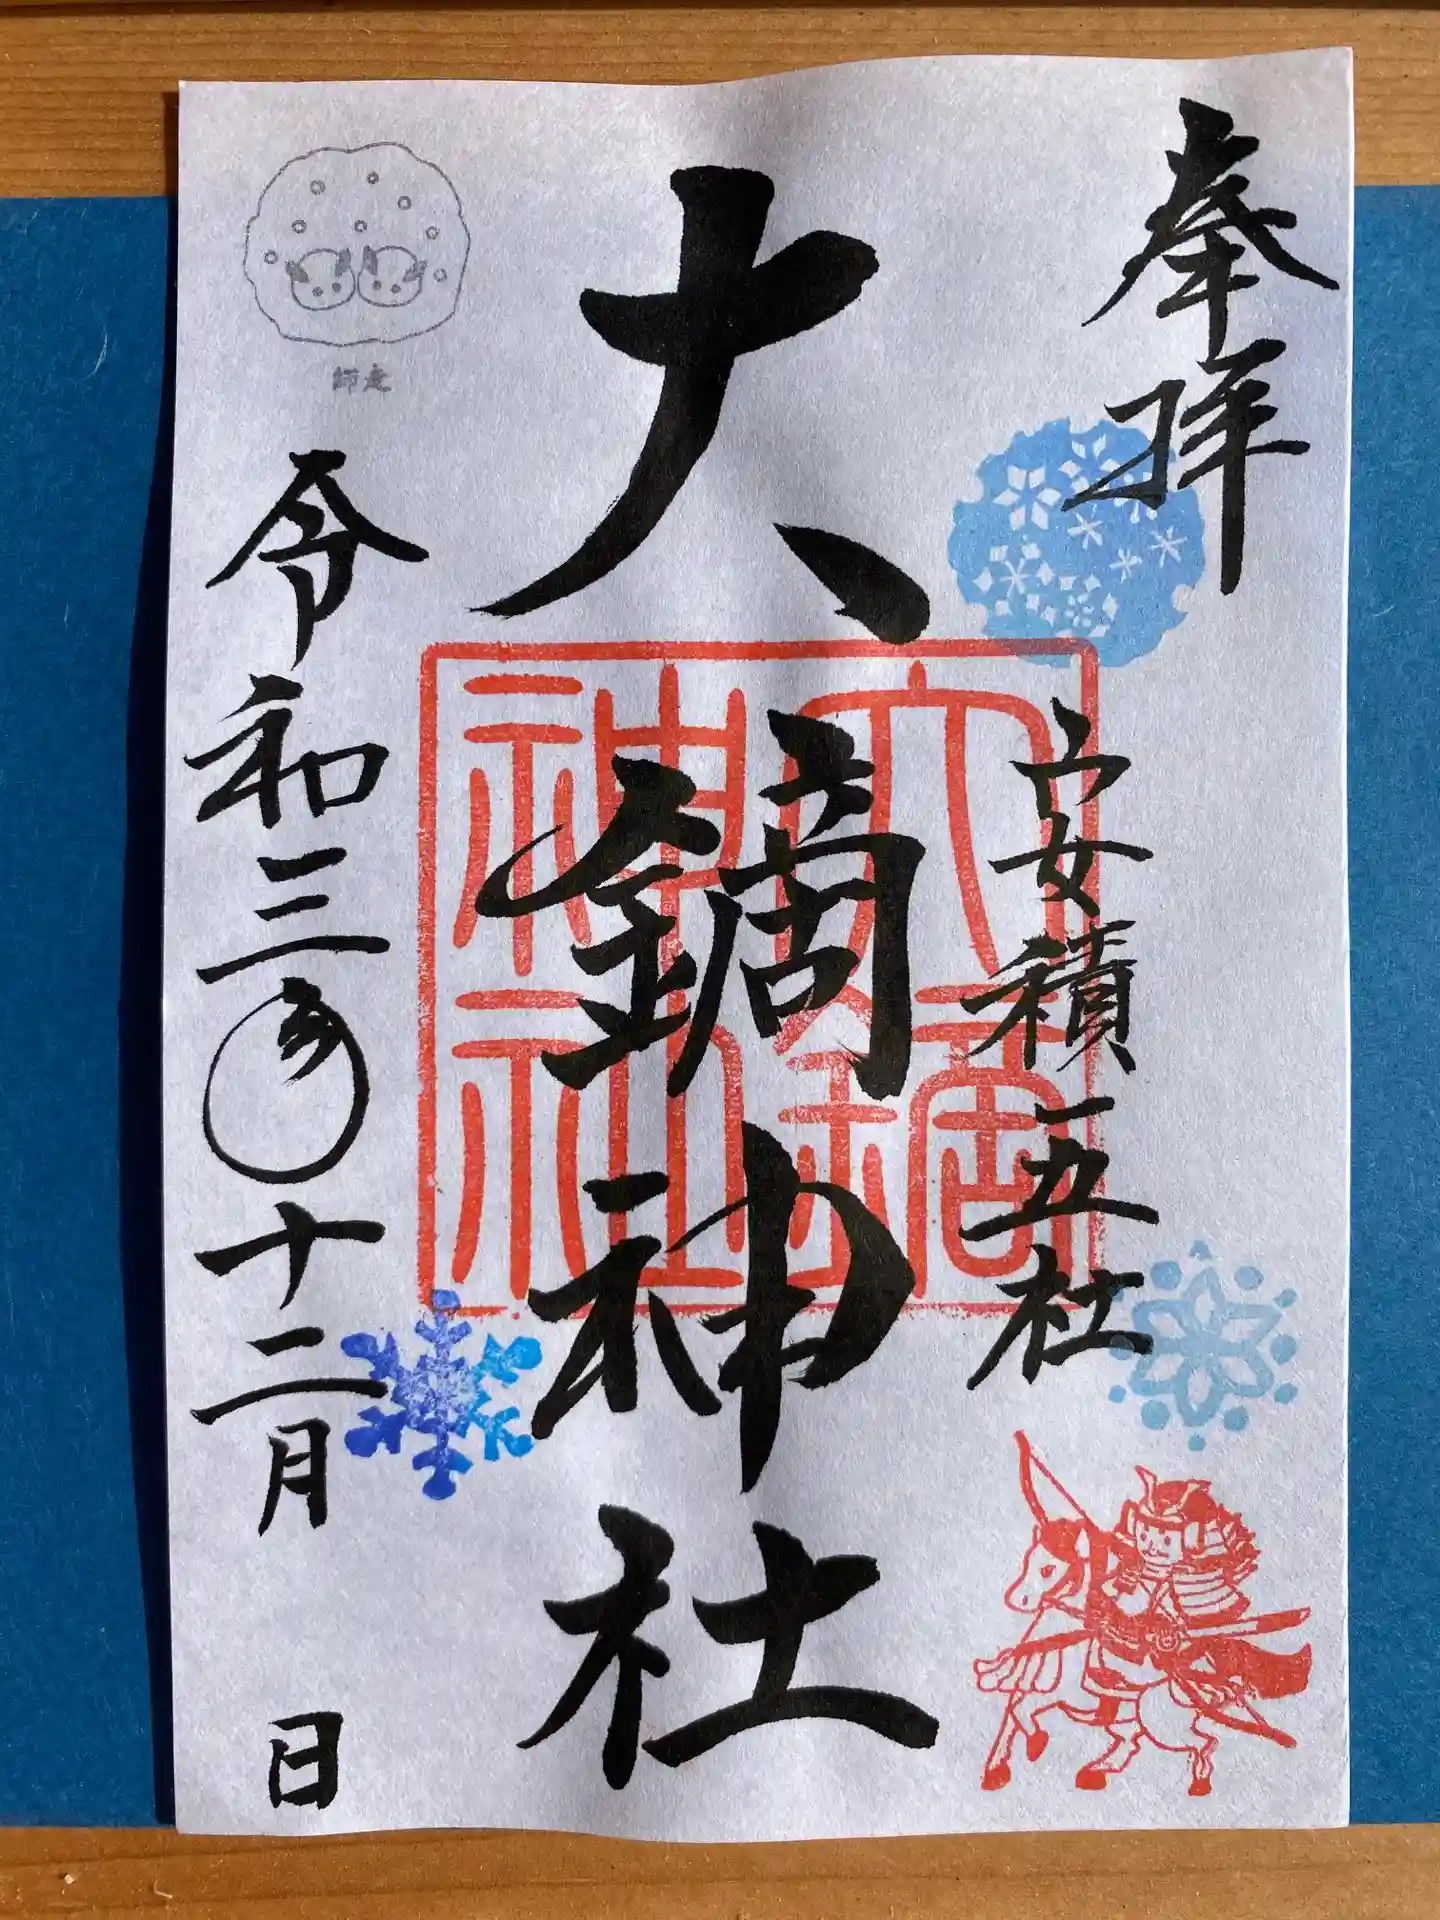 奉拝
安積五社
大鏑神社
大鏑
神社
師走
令和三年十二月 日